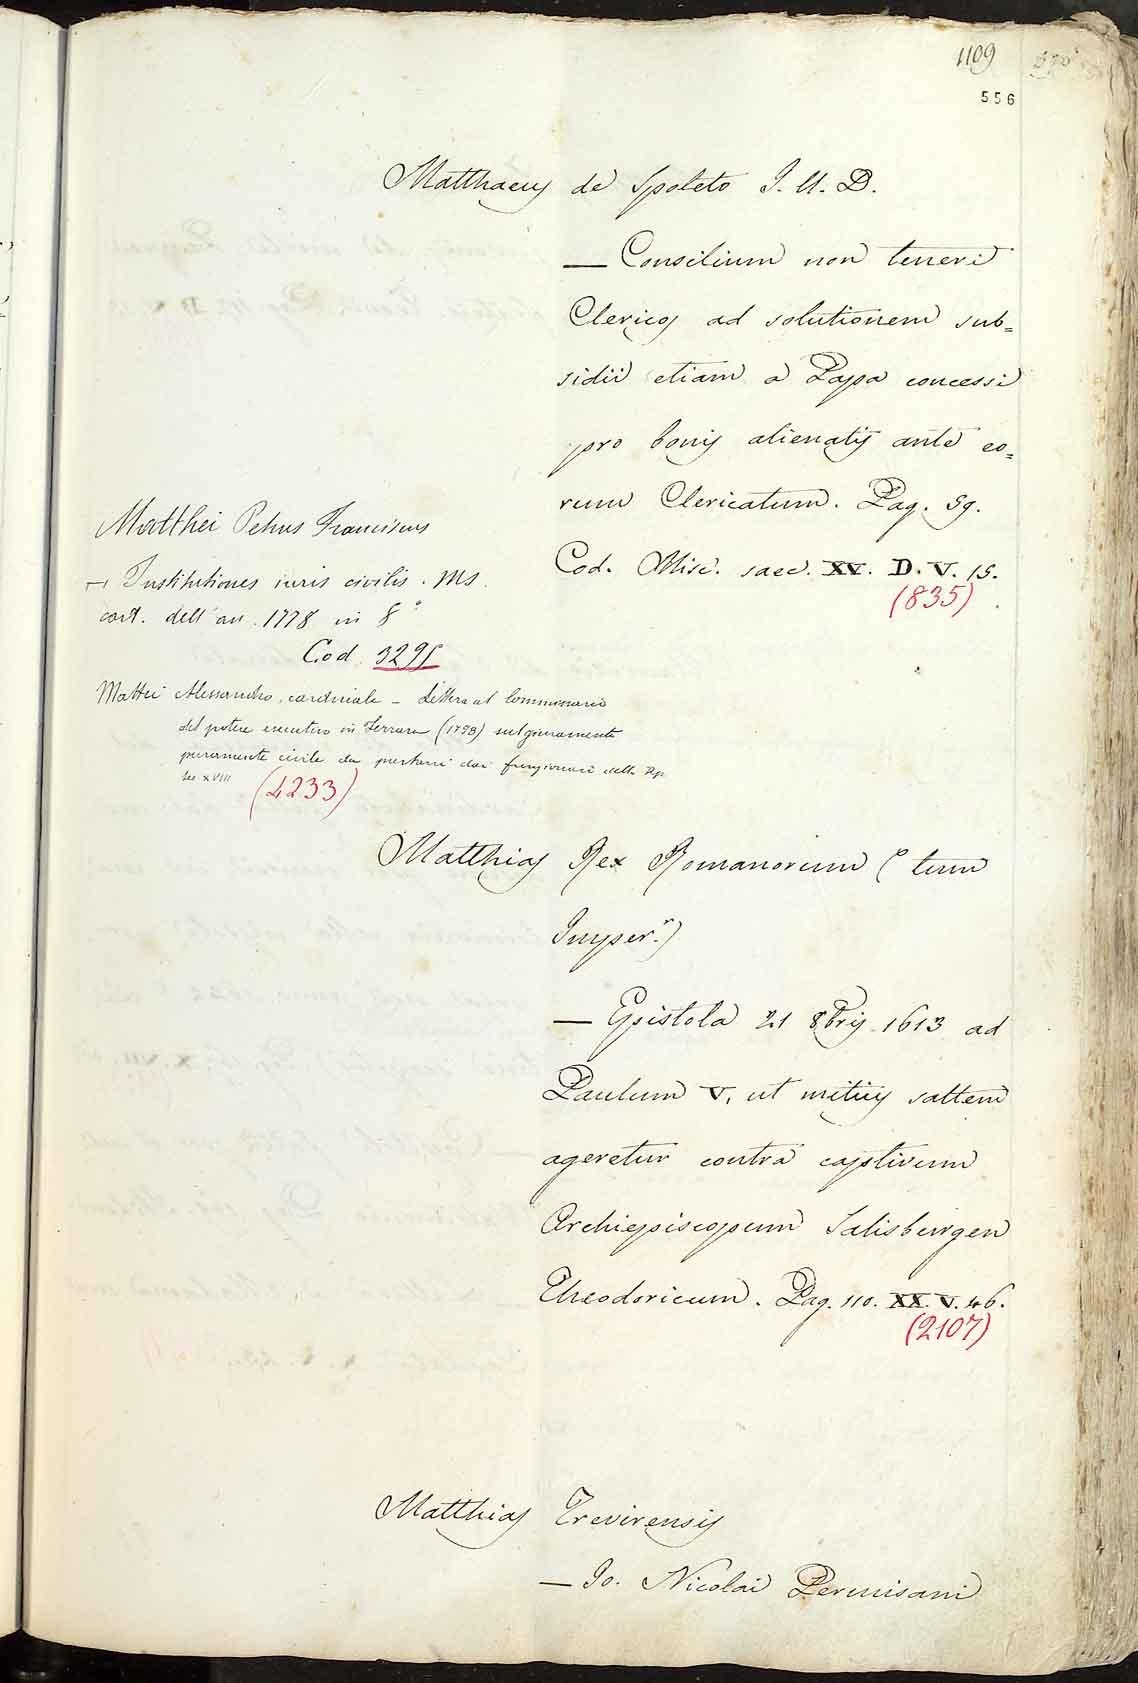 1109
556
Matthaeus de Spoleto J. U. D.
— Consilium non teneri
Clericos ad solutionem sub=
sidii etiam a Papa concessi
pro bonis alienatis ante eo=
rum Clericatum. Pag. 59.
Cod. Misc. saec. XV. D. V. 15.
(835)
Matthei Petrus Franciscus
— Institutiones iuris civilis. Ms.
cart. dell'an. 1778 in 8°
Cod. 3291
Mattei Alessandro, cardinale – Lettera al Commissario
del potere esecutivo in Ferrara (1798) sul giuramento
puramente civile da prestarsi dai funzionari della Rep.
sec XVIII
(4233)
Matthias Rex Romanorum (tum
Imper.r)
— Epistola 21 8bris 1613 ad
Paulum V, ut mitius saltem
ageretur contra captivum
Archiepiscopum Salisburgen
Theodoricum. Pag. 110. XX. V. 46.
(2107)
Matthias Trevirensis
— Jo. Nicolai Permisani